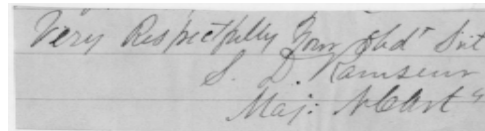 Very Respectfully Your Obdt Svt
S. D. Ramseur
Maj: N.C. Arty